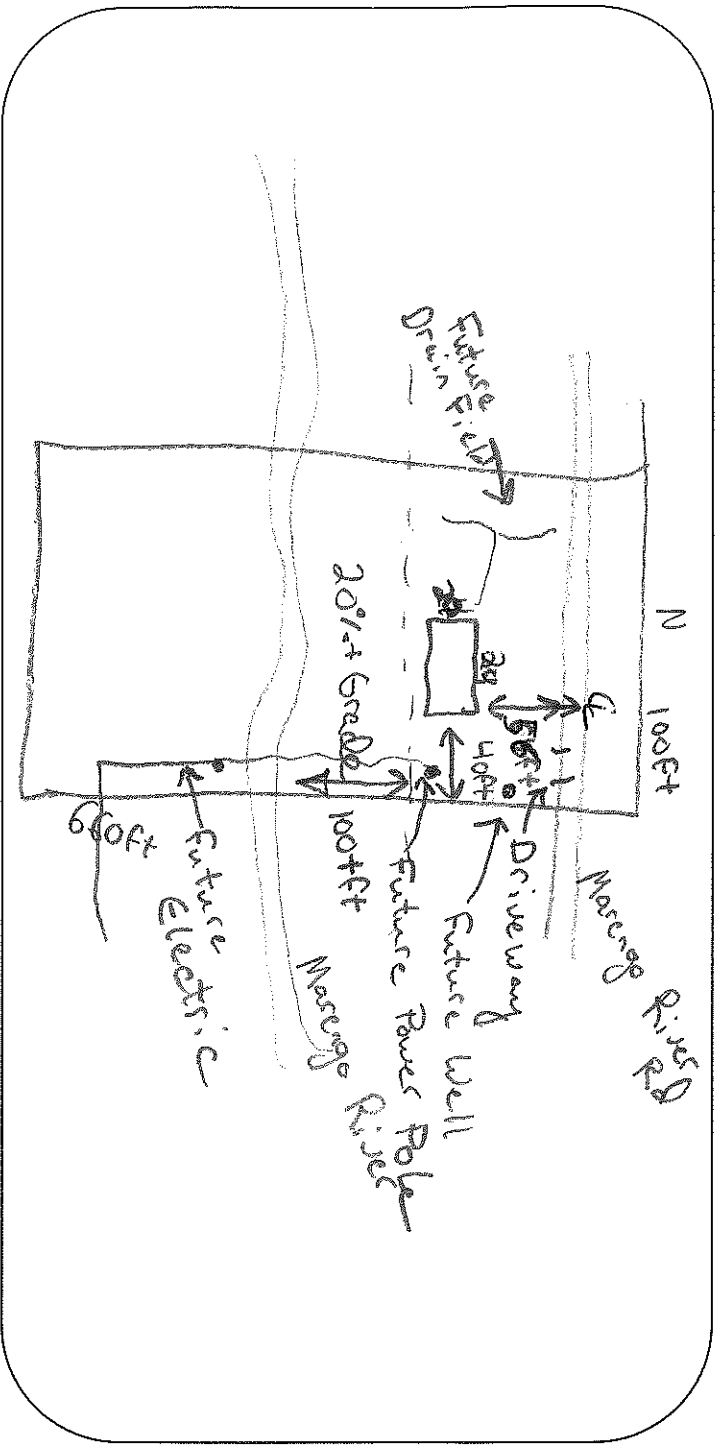 N
100ft
Marengo River
Rd
℄
56ft
Driveway
Future Well
40ft
Future Power Pole
Future
Drain Field
20%+ Grade
100+ft
Marengo River
Future
Electric
660ft